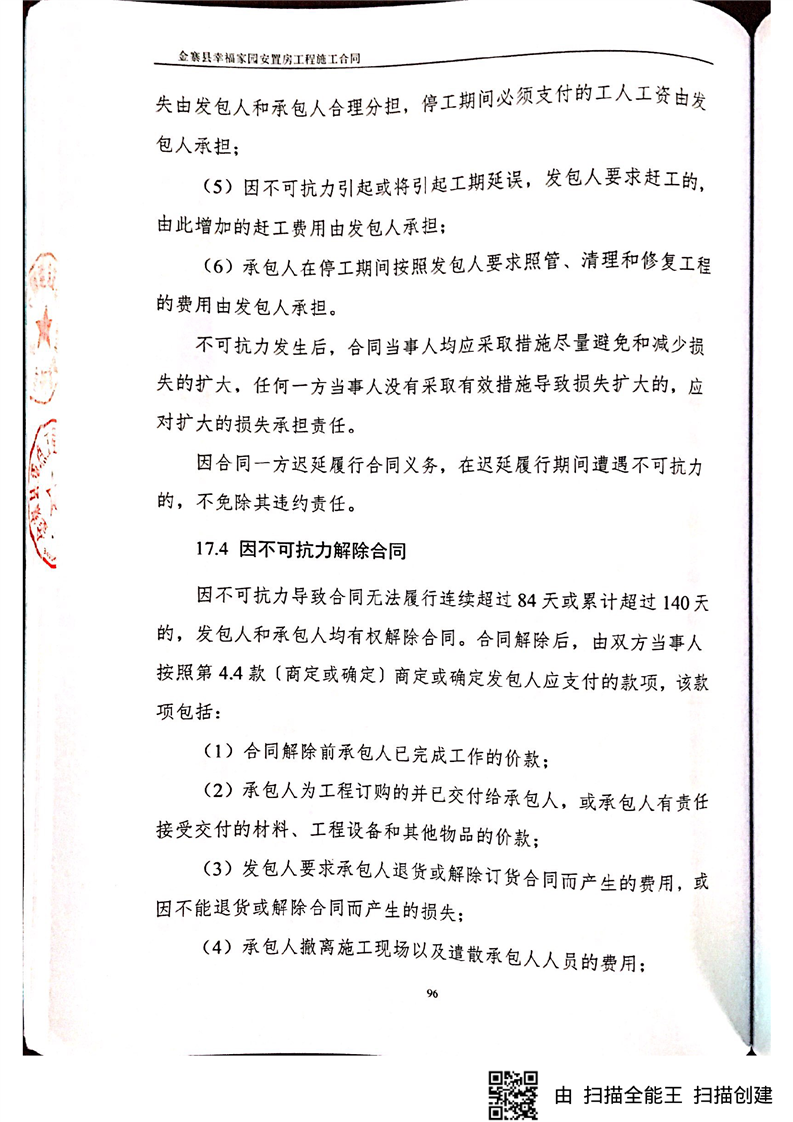 金寨县幸福家园安置房工程施工合同
失由发包人和承包人合理分担，停工期间必须支付的工人工资由发
包人承担；
（5）因不可抗力引起或将引起工期延误，发包人要求赶工的，
由此增加的赶工费用由发包人承担；
（6）承包人在停工期间按照发包人要求照管、清理和修复工程
的费用由发包人承担。
不可抗力发生后，合同当事人均应采取措施尽量避免和减少损
失的扩大，任何一方当事人没有采取有效措施导致损失扩大的，应
对扩大的损失承担责任。
因合同一方迟延履行合同义务，在迟延履行期间遭遇不可抗力
的，不免除其违约责任。
17.4 因不可抗力解除合同
因不可抗力导致合同无法履行连续超过 84 天或累计超过 140 天
的，发包人和承包人均有权解除合同。合同解除后，由双方当事人
按照第 4.4 款〔商定或确定〕商定或确定发包人应支付的款项，该款
项包括：
（1）合同解除前承包人已完成工作的价款；
（2）承包人为工程订购的并已交付给承包人，或承包人有责任
接受交付的材料、工程设备和其他物品的价款；
（3）发包人要求承包人退货或解除订货合同而产生的费用，或
因不能退货或解除合同而产生的损失；
（4）承包人撤离施工现场以及遣散承包人人员的费用；
96
由 扫描全能王 扫描创建